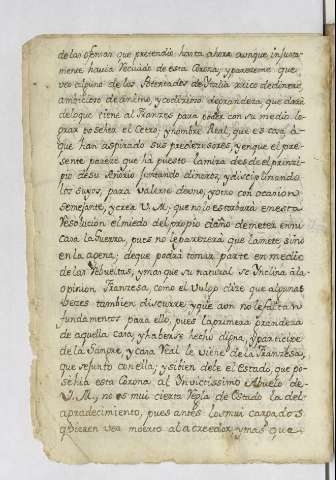 de las ofensas que pretendio hasta ahora aunque injusta-
mente havia recivido de esta Corona; y parereme que
veo alguno de los Potentados de Italia rrico de dinero,
ambicioso de animo, y codicioso de grandeza, que dara
de lo que tiene al Franzes para poder con su medio lo-
grar poseher el Cetro, y nombre Real, que es cosa a
que han aspirado sus predecessores, y en que el pre-
sente pareze que ha puesto la mira desde el princi-
pio de su señorio juntando dineros, y disciplinando
los suyos, para valerse de uno, y otro con ocasion
semejante, y crea V.M. que no lo estorbara en esta
resolucion el miedo del propio daño de meter en mi
casa la Guerra, pues no le parezera que la mete sino
en la agena; de que podrà tomar parte en medio
de las rebueltas, y mas que su natural se inclina à la
opinion Franzesa, como el vulgo dize que algunas
vezes tambien discurre; y que aon no le faltan
fundamentos para ello, pues la primera grandeza
de aquella casa, y haberse hecho digna, y participe
de la Sangre, y casa Real le viene de la Franzesa,
que se junto con ella; y si bien debe el Estado, que po-
sehia esta Corona al Invictissimo Abuelo de
V.M., no es mui cierta regla de Estado la del
agradecimiento, pues antes los mui cargados
quieren ver muerto al acreedor, y mas que